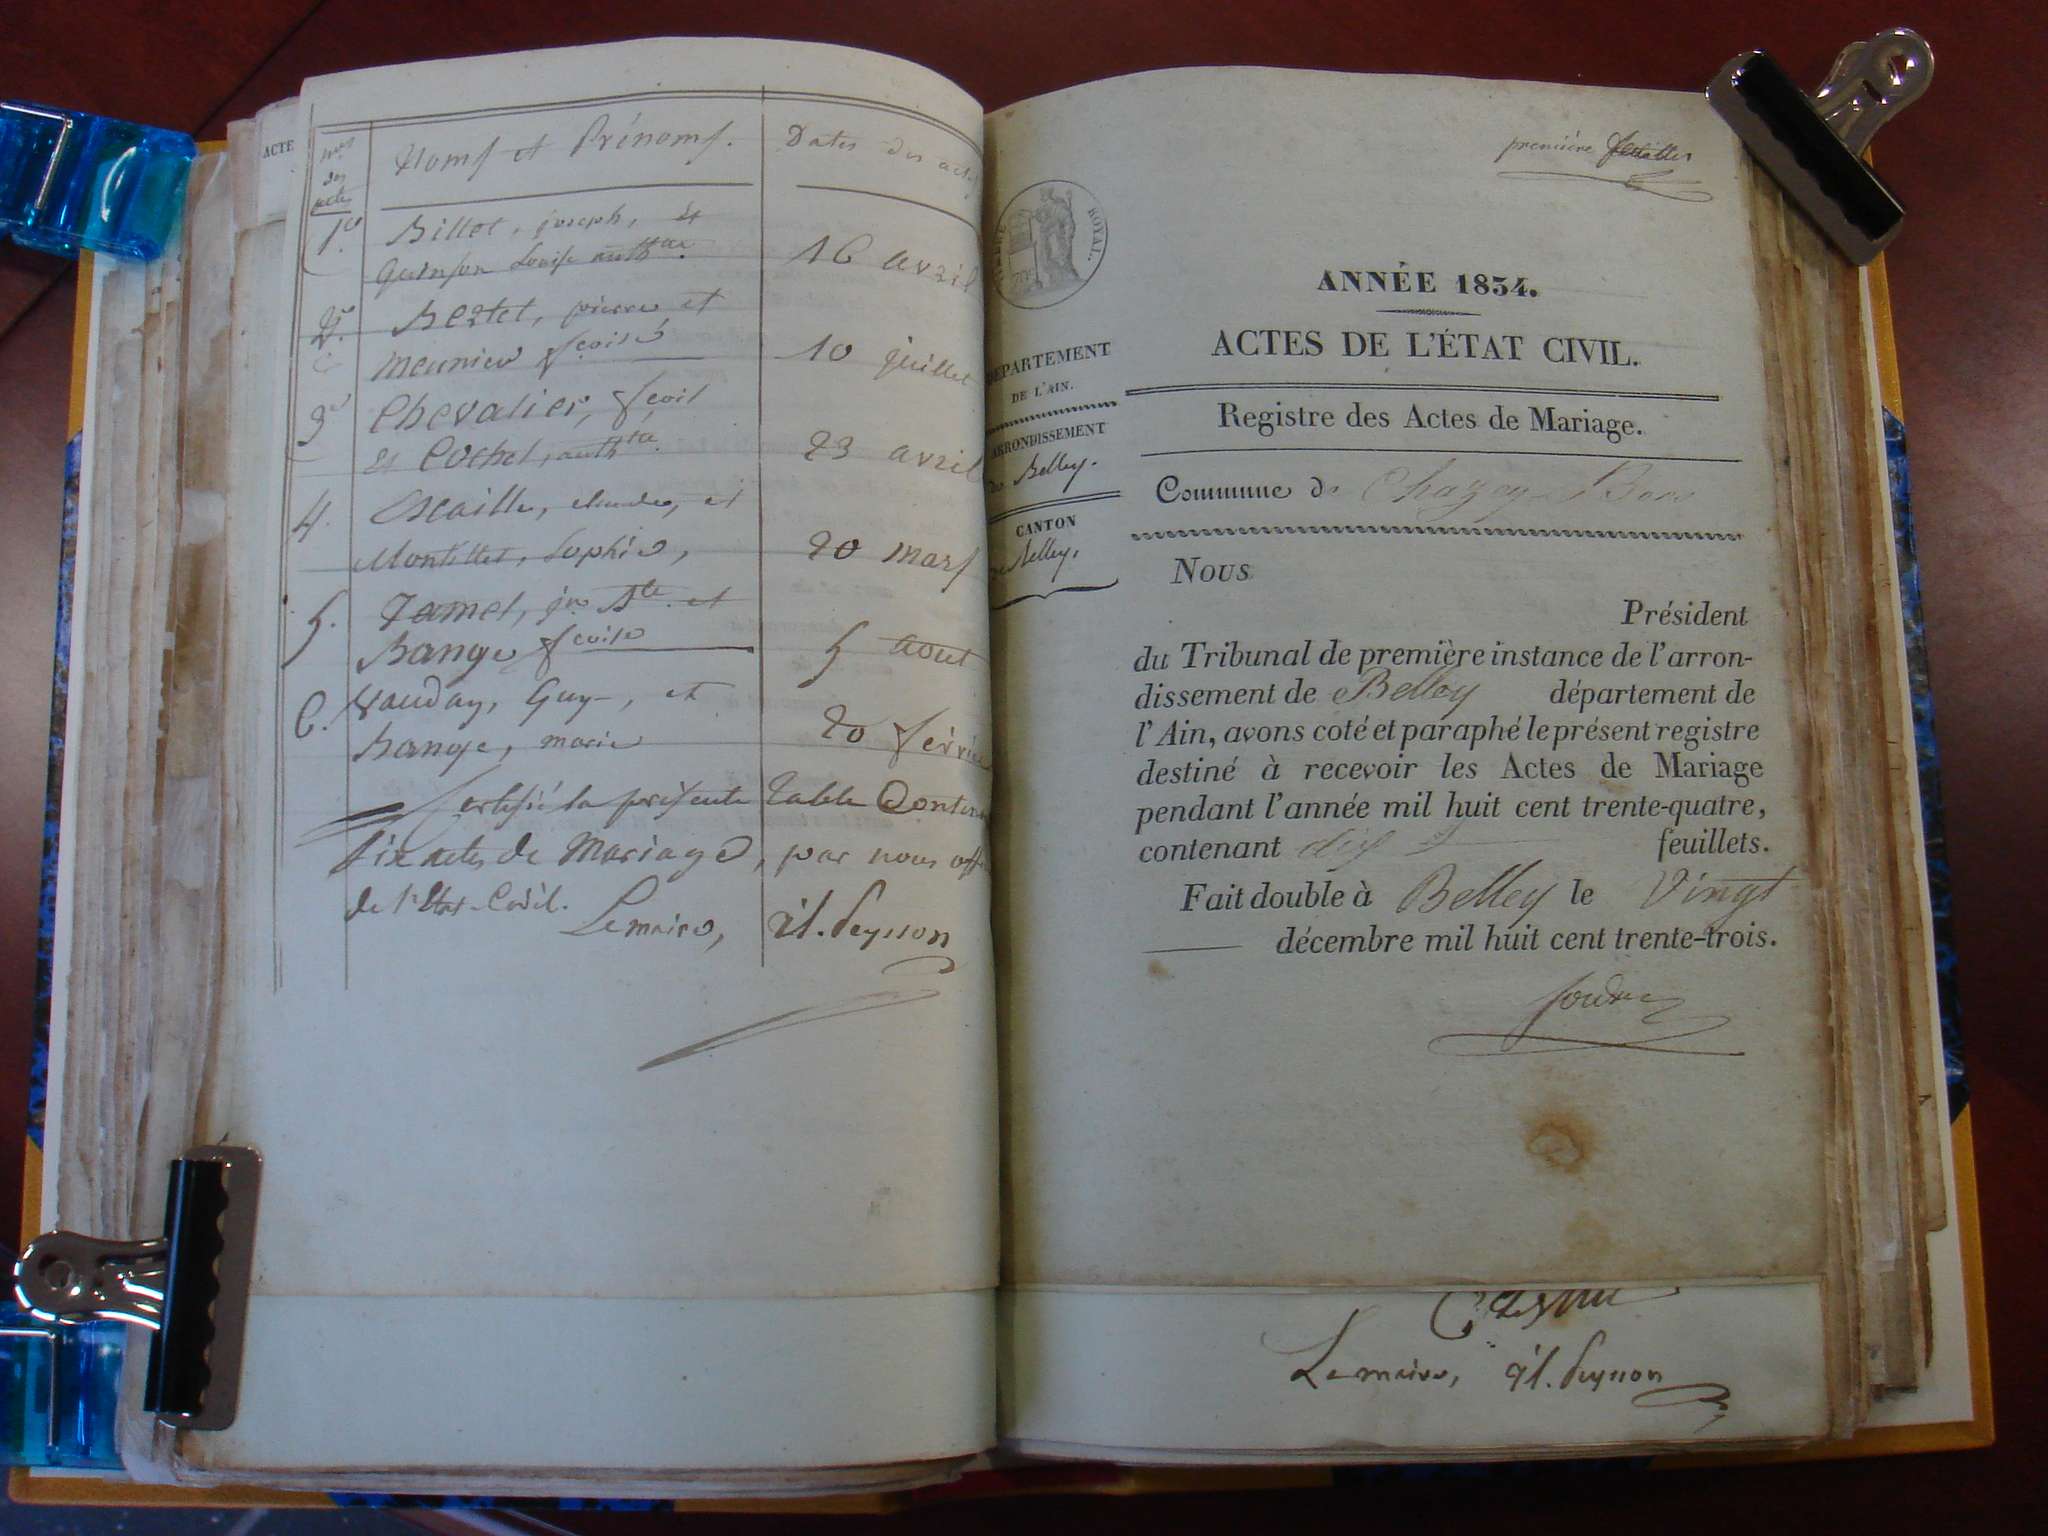 ACTE
nos
des
actes
Noms et Prénoms.
Dates des act
1er
Billot, joseph, et
quinson Louise anth.
16 avril
2e
Bertet, pierre et
meunier fcoise
10 juillet
3e
Chevalier, fcois
et Cochet, anth.
23 avril
4.
Escaille, claude, et
Montillet, Sophie,
20 mars
5.
Jamet, jn Bte et
Bange fcoise
5 aout
6.
Vauday, Guy, et
Bange, marie
20 févrie
Certifié la présente table Conten
Six actes de Mariage, par nous offi
de l'Etat-Civil.
Le maire, Peysson
première
ROYAL.
ANNÉE 1834.
ACTES DE L'ÉTAT CIVIL.
DÉPARTEMENT
DE L'AIN.
ARRONDISSEMENT
de Belley.
CANTON
de Belley.
Registre des Actes de Mariage.
Commune de Chazey-Bons
Nous
Président
du Tribunal de première instance de l'arron-
dissement de Belley département de
l'Ain, avons coté et paraphé le présent registre
destiné à recevoir les Actes de Mariage
pendant l'année mil huit cent trente-quatre,
contenant dix feuillets.
Fait double à Belley le Vingt
décembre mil huit cent trente-trois.
Le maire, Peysson